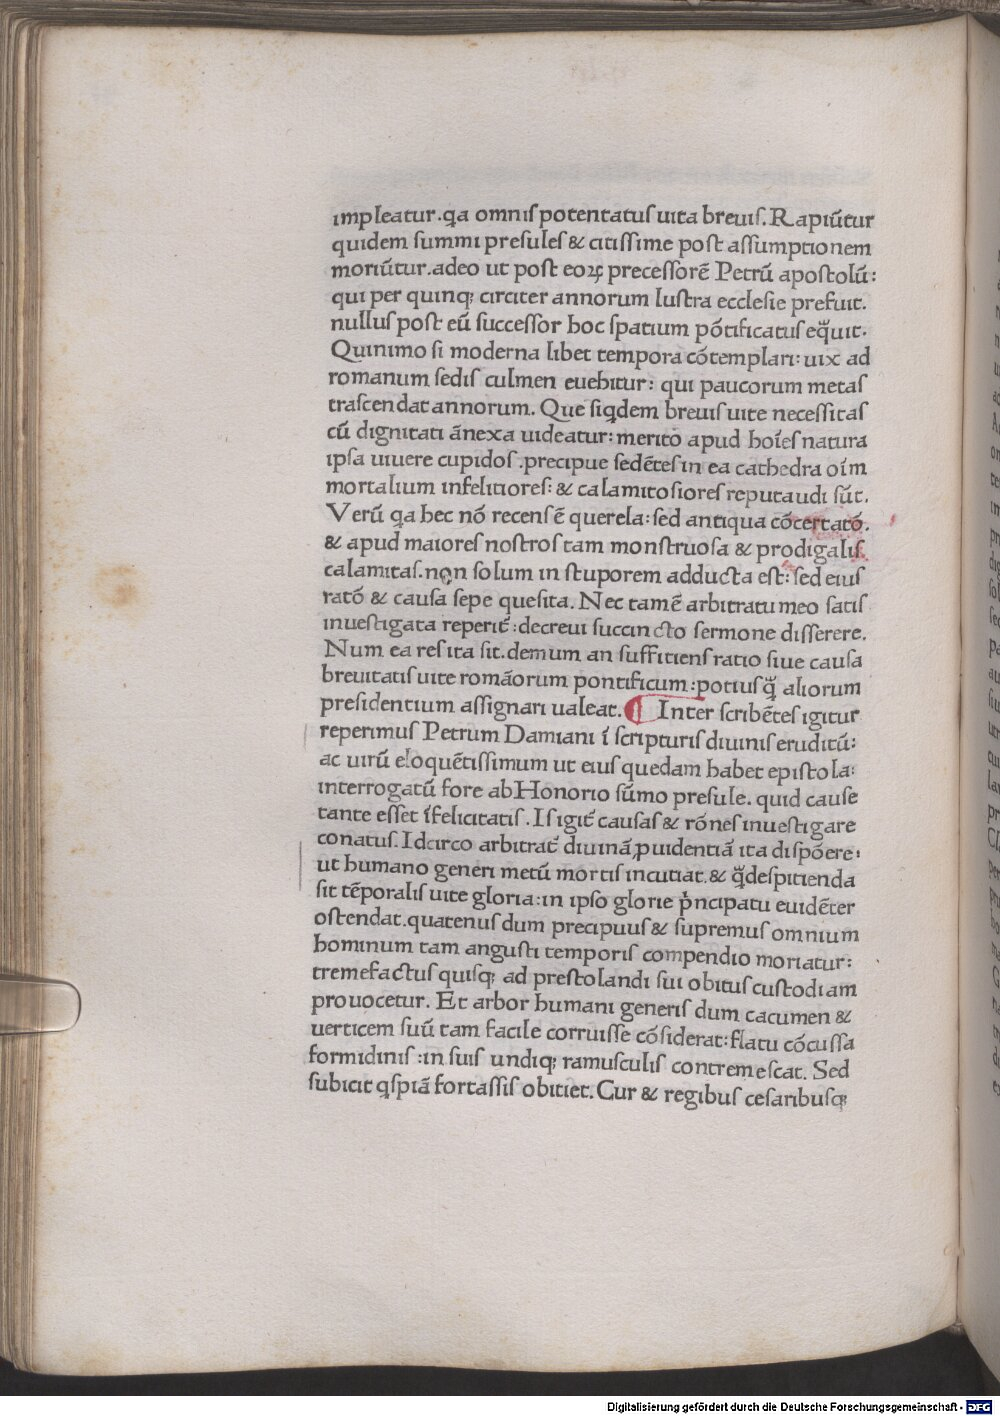 impleatur.qa omnıſ potentatuſ uita breuiſ. Rapiūtur
quidem ſummi preſuleſ & citiſſime poſt aſſumptionem
moriūtur.adeo ut poſt eoꝝ preceſſorē Petrū apoſtolū:
qui per quinqꝫ circiter annorum luſtra eccleſie prefuit.
nulluſ poſt eū ſucceſſor hoc ſpatium pōtificatuſ eqͣuit.
Quinimo ſi moderna libet tempora cōtemplari: uix ad
romanum ſediſ culmen euehitur: qui paucorum metaſ
trāſcendat annorum. Que ſiqdem breuiſ uite neceſſitaſ
cū dignitati ānexa uideatur: merito apud hoīeſ natura
ipſa uiuere cupidoſ .precipue ſedēteſ in ea cathedra oīm
mortalium infelitioreſ: & calamitoſioreſ reputaudi ſūt.
Verū qa hec nō recenſ ē querela: ſed antiqua cōcertatō.
& apud maioreſ noſtroſ tam monſtruoſa & prodigaliſ
calamitaſ.non ſolum in ſtuporem adducta eſt: ſed eiuſ
ratō & cauſa ſepe queſita. Nec tamē arbitratu meo ſatiſ
inueſtigata reperit᷑ :decreui ſuccincto ſermone diſſerere.
Num ea reſ ita ſit.demum an ſuffitienſ ratio ſiue cauſa
breuitatiſ uite romāorum pontificum :potiuſ qͣ̄ aliorum
preſidentium aſſignari ualeat. ¶ Inter ſcribēteſ igitur
reperimuſ Petrum Damiani ī ſcripturiſ diuiniſ eruditū:
ac uirū eloquētiſſimum ut eiuſ quedam habet epiſtola:
interrogatū fore ab Honorio ſūmo preſule. quid cauſe
tante eſſet īfelicitatiſ . Iſ igit᷑ cauſaſ & rōneſ inueſtigare
conatuſ. Idcirco arbitrat᷑ diuinā ꝓuidentiā ita diſpōere:
ut humano generi metū mortiſ incutiat.& qͣ̄ deſpitienda
ſit tēporaliſ uite gloria:in ipſo glorie pͥncipatu euidēter
oſtendat.quatenuſ dum precipuuſ & ſupremuſ omnium
hominum tam anguſti temporiſ compendio moriatur:
tremefactuſ quiſqꝫ ad preſtolandi ſui obituſ cuſtodiam
prouocetur. Et arbor humani generiſ dum cacumen &
uerticem ſuū tam facile corruiſſe cōſiderat: flatu cōcuſſa
formidiniſ :in ſuiſ undiqꝫ ramuſculiſ contremeſcat. Sed
ſubicit qſpiā fortaſſiſ obitiet. Cur & regibuſ ceſaribuſqꝫ
Digitalisierung gefördert durch die Deutsche Forschungsgemeinschaft - DFG